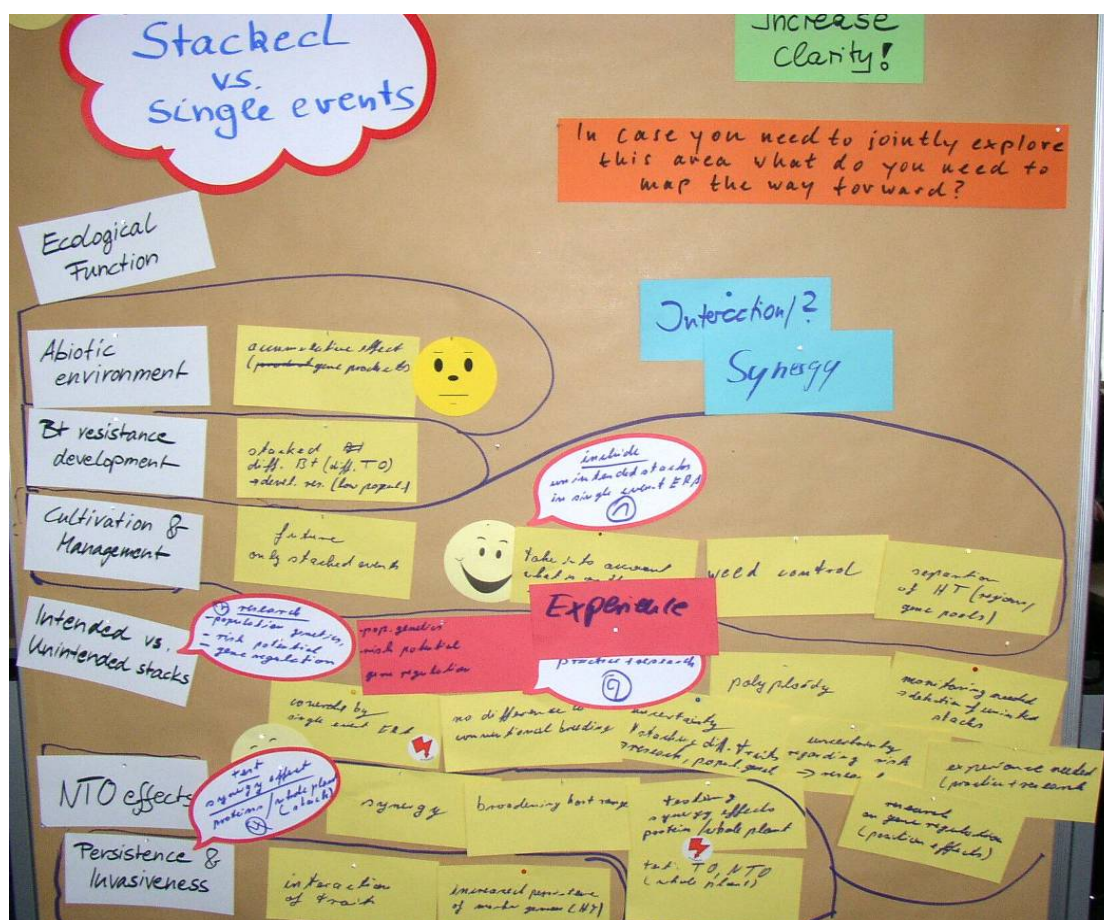 Stacked
vs.
Single events
Increase
Clarity!
In case you need to jointly explore
this area what do you need to
map the way forward?
Ecological
Function
Interaction/?
Synergy
Abiotic
environment
accumulative effect
gene products
Bt resistance
development
stacked
diff. Bt (diff. TO)
→ devel. res. (low popul.)
include
unintended stacks
in single event ERA
Cultivation &
Management
future
only stacked events
take into account
what is on the
weed control
separation
of HT (regions,
gene pools)
Intended vs.
Unintended stacks
research
- population genetics,
- risk potential
- gene regulation
- pop. genetics
- risk potential
gene regulation
Experience
practice + research
9
polyploidy
monitoring needed
→ detection of
stacks
covered by
single event ERA
no difference to
conventional breeding
uncertainty
stacking diff. traits
uncertainty
regarding risk
experience needed
(practice + research)
NTO effects
test
synergy effect
proteins / whole plant
(stack)
synergy
broadening host range
testing
synergy effects
protein / whole plant
test: TO, NTO
(whole plant)
research
on gene regulation
(position effects)
Persistence &
Invasiveness
interaction
of trait
increased
of